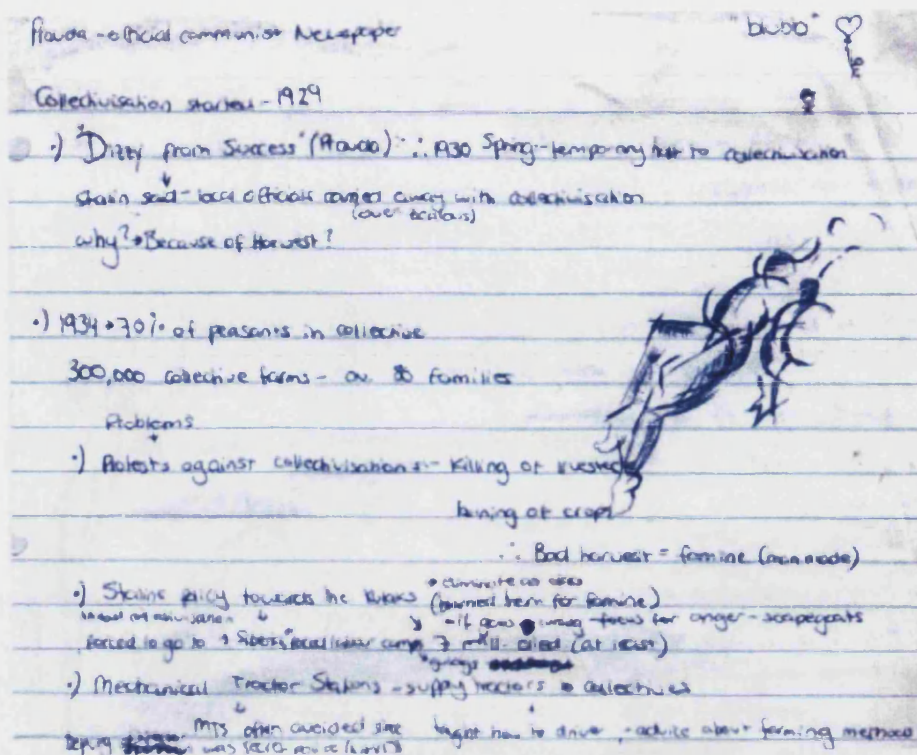 Pravda - official communist Newspaper
"blubb"
Collectivisation started - 1929
·) "Dizzy from Success" (Pravda) ∴ 1930 Spring - temporary halt to collectivisation
Stalin said - local officials carried away with collectivisation
(over zealous)
why? → Because of Harvest?
·) 1934 → 70% of peasants in collective
300,000 collective farms - av. 80 families
Problems
·) Protests against collectivisation - killing of livestock
burning of crops
∴ Bad harvest = famine (manmade)
• eliminate as class
·) Stalins policy towards the Kulaks (blamed them for famine)
- if goes wrong - focus for anger - scapegoats
forced to go to Siberia labour camp 7 mill. died (at least)
gulags
·) Mechanical Tractor Stations - supply tractors → collectives
MTS often avoided since taught how to drive, - advice about farming methods
Deputy was secret police (NKVD)